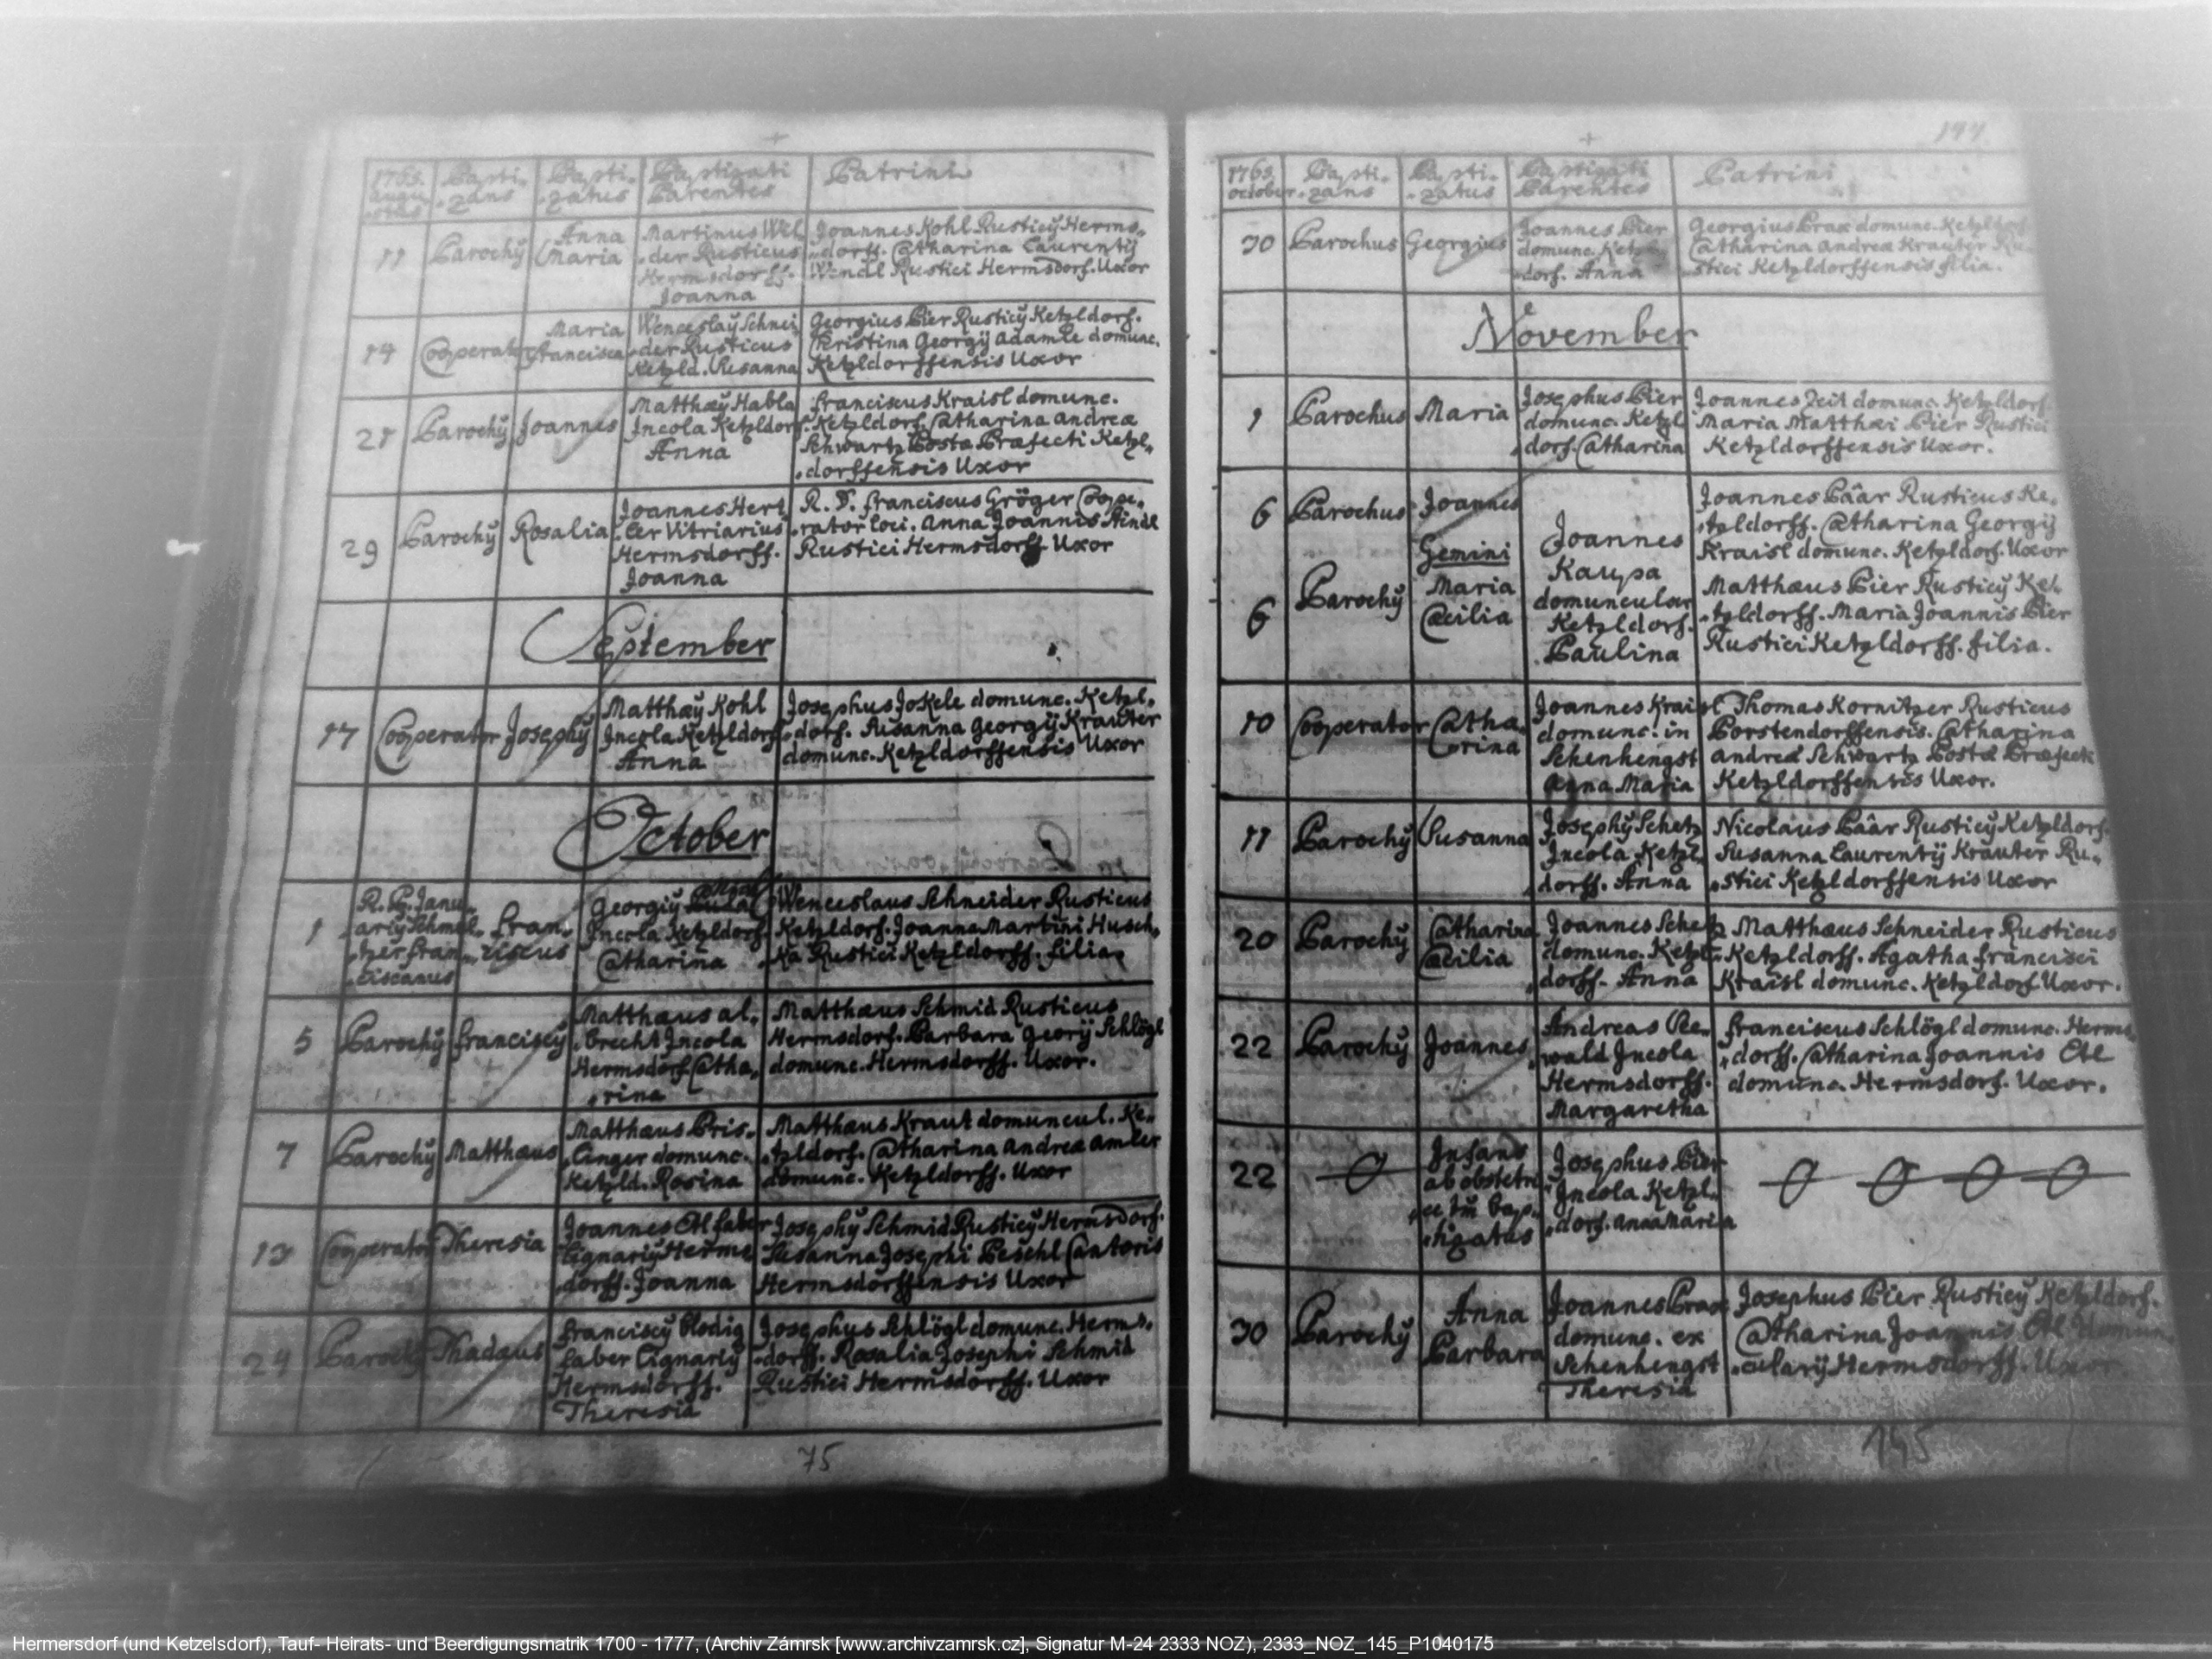 1765. Augustus
Bapti-zans
Bapti-zatus
Baptizati Parentes
Patrini
11
Parochy
Anna
Maria
Martinus Wil
der Rusticus
Hermsdorff.
Joanna
Joannes Kohl Rusticy Herms-
dorff. Catharina Laurentij
Wendl Rustici Hermsdorf. Uxor
14
Cooperator
Maria
Francisca
Wenceslaÿ Schnei
der Rusticus
Ketzld. Susanna
Georgius Bier Rusticy Ketzldorf.
Christina Georgij Adamle domunc.
Ketzldorffensis Uxor
Parochy
Joannes
Matthæy Habla
Incola Ketzldorf.
Anna
Franciscus Kraisl domunc.
Ketzldorf. Catharina Andreæ
Schwartz Postæ Præfecti Ketzl-
dorffensis Uxor
29
Parochy
Rosalia
Joannes Hert
ler Vitriarius
Hermsdorff.
Joanna
R. D. Franciscus Gröger Coope-
rator loci. Anna Joannis
Rustici Hermsdorff. Uxor
September
17
Cooperator
Josephy
Matthæy Kohl
Incola Ketzldorf
Anna
Josephus Jokele domunc. Ketzl-
dorf. Susanna Georgij Krauter
domunc. Ketzldorffensis Uxor
October
1
R. P. Janu-
Fran-
ciscus
ciscanus
Georgiÿ
Incola Ketzldorf
Catharina
Wenceslaus Schneider Rusticus
Ketzldorf. Joanna Martini Husch-
ka Rustici Ketzldorff. filia.
5
Parochy
Franciscy
Matthæus Al-
brecht Incola
Hermsdorf. Catha-
rina
Matthæus Schmid Rusticus
Hermsdorf. Barbara Georij Schlögl
domunc. Hermsdorff. Uxor.
7
Parochy
Matthæus
Matthæus Pris-
linger domunc.
Ketzld. Rosina
Matthæus Kraut domuncul. Ke-
tzldorf. Catharina Andreæ Amler
domunc. Ketzldorff. Uxor
13
Cooperator
Theresia
Joannes Etl faber
Lignariÿ Herms
dorff. Joanna
Josephy Schmid Rusticy Hermsdorf.
Susanna Josephi Peschl Cantoris
Hermsdorffensis Uxor
24
Parochy
Thadæus
Franciscy Blodig
faber Lignariy
Hermsdorff.
Theresia
Josephus Schlögl domunc. Herms-
dorff. Rosalia Josephi Schmid
Rustici Hermsdorff. Uxor
75
144
1765. October
Bapti-zans
Bapti-zatus
Baptizati Parentes
Patrini
30
Parochus
Georgius
Joannes Bier
domunc. Ketzl-
dorf. Anna
Georgius Prax domunc. Ketzldorf
Catharina Andreæ Krauter Ru-
stici Ketzldorffensis filia.
November
1
Parochus
Maria
Josephus Bier
domunc. Ketzl
dorf. Catharina
Joannes Zeit domunc. Ketzldorf.
Maria Matthæi Bier Rustici
Ketzldorffensis Uxor.
6
Parochus
Joannes
Gemini
6
Parochy
Maria
Cæcilia
Joannes
Kaupa
domuncular
Ketzldorf.
Paulina
Joannes Påår Rusticus Ke-
tzldorff. Catharina Georgij
Kraisl domunc. Ketzldorf. Uxor
Matthæus Bier Rusticy Ket-
tzldorff. Maria Joannis Bier
Rustici Ketzldorff. filia.
10
Cooperator
Catha-
rina
Joannes Kraisl
domunc. in
Schenhengst
Anna Maria
Thomas Kornitzer Rusticus
Porstendorffensis. Catharina
Andreæ Schwartz Postæ Præfecti
Ketzldorffensis Uxor.
11
Parochy
Susanna
Josephy Schetz
Incola Ketzl-
dorff. Anna
Nicolaus Påår Rusticy Ketzldorf.
Susanna Laurentij Krauter Ru-
stici Ketzldorffensis Uxor
20
Parochy
Catharina
Cæcilia
Joannes Schetz
domunc. Ketzl-
dorff. Anna
Matthæus Schneider Rusticus
Ketzldorff. Agatha Francisci
Kraisl domunc. Ketzldorf. Uxor.
22
Parochy
Joannes
Andreas
wald Incola
Hermsdorff.
Margaretha
Franciscus Schlögl domunc. Herms-
dorff. Catharina Joannis Etl
domunc. Hermsdorf. Uxor.
22
Infans
ab obstetri-
ce tm bap-
tizatus
Josephus Bier
Incola Ketzl-
dorf. Anna Maria
30
Parochy
Anna
Barbara
Joannes Prax
domunc. ex
Schenhengst
Theresia
Josephus Bier Rusticy Ketzldorf.
Catharina Joannis Etl domun-
cularij Hermsdorff. Uxor
145
Hermersdorf (und Ketzelsdorf), Tauf- Heirats- und Beerdigungsmatrik 1700 - 1777, (Archiv Zámrsk [www.archivzamrsk.cz], Signatur M-24 2333 NOZ), 2333_NOZ_145_P1040175